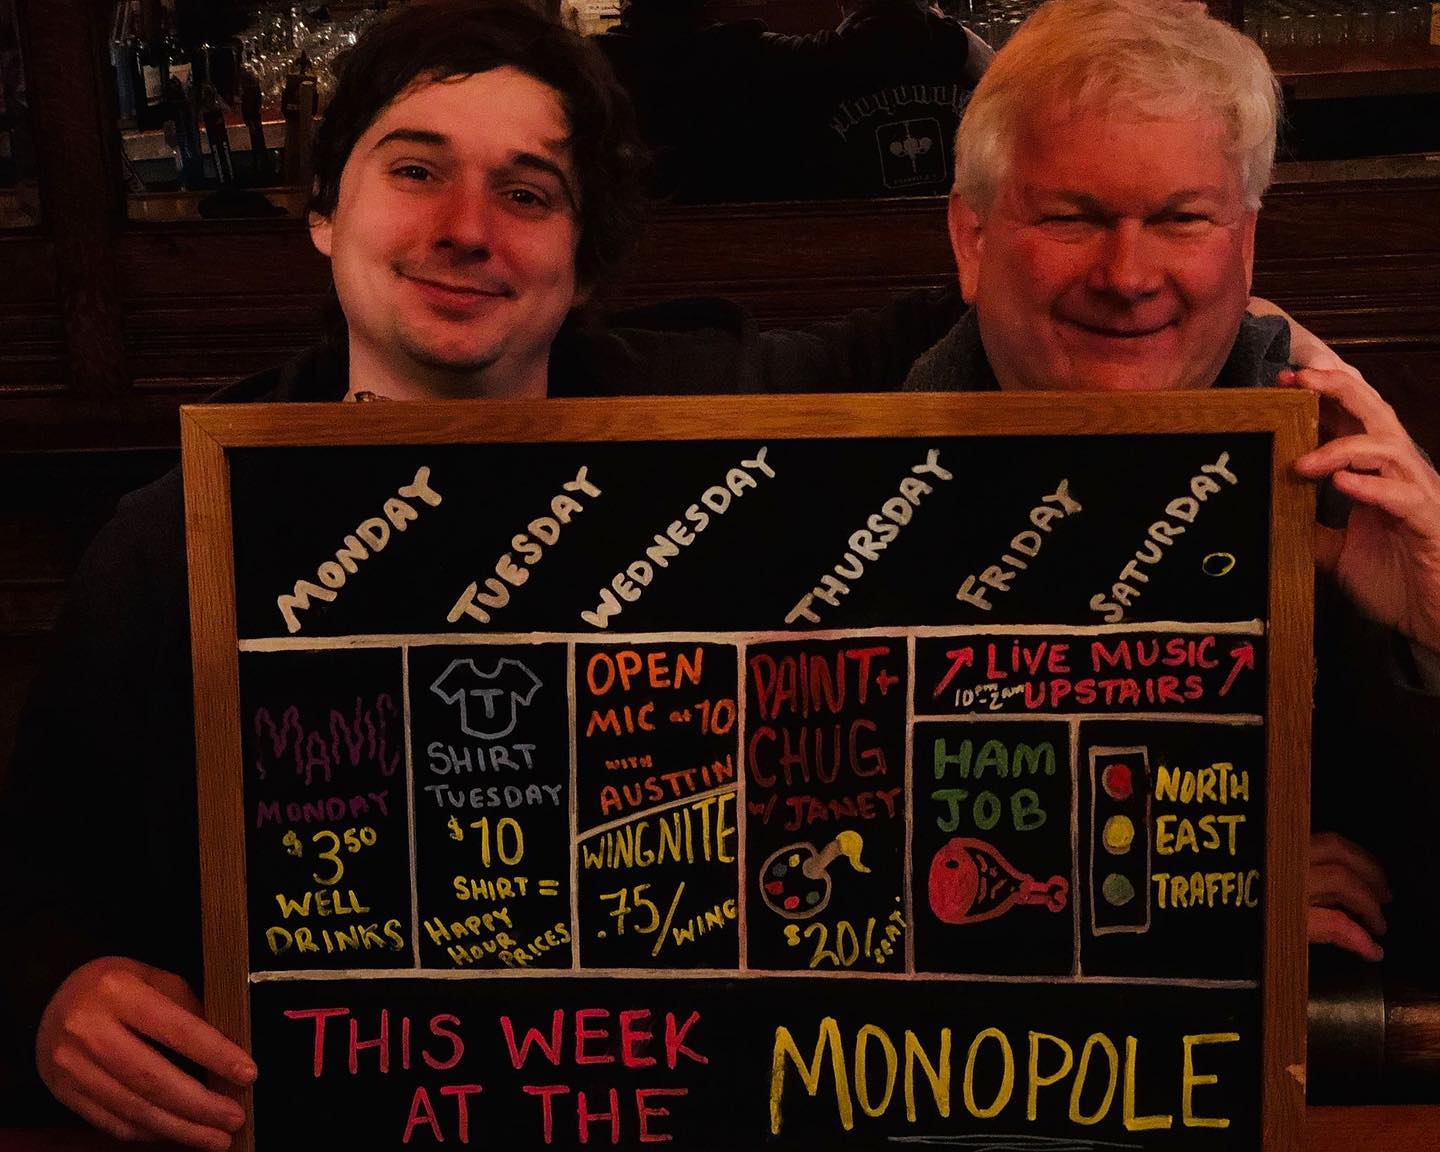 MONDAY
TUESDAY
WEDNESDAY
THURSDAY
FRIDAY
SATURDAY
MANIC
MONDAY
$3.50
WELL
DRINKS
T
SHIRT
TUESDAY
$10
SHIRT =
HAPPY
HOUR
PRICES
OPEN
MIC at 10
WITH
AUSTTIN
WINGNITE
.75/WING
PAINT+
CHUG
W/ JANEY
$20/SEAT
LiVE MUSIC
10pm-2am UPSTAIRS
HAM
JOB
NORTH
EAST
TRAFFIC
THIS WEEK
AT THE
MONOPOLE